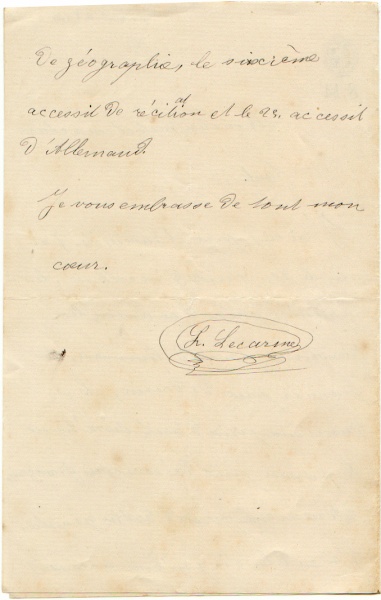 de géographie, le sixième
accessit de récitation et le 2e. accessit
d'Allemand.
Je vous embrasse de tout mon
cœur.
Lecarme